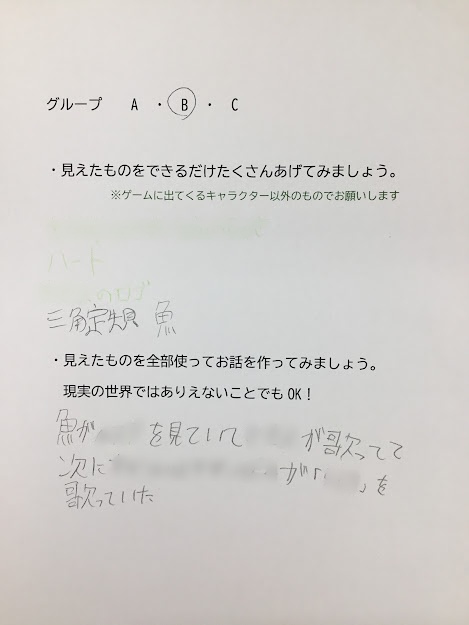 グループ　A ・ B ・ C
・見えたものをできるだけたくさんあげてみましょう。
※ゲームに出てくるキャラクター以外のものでお願いします
ハート
三角定規　魚
・見えたものを全部使ってお話を作ってみましょう。
現実の世界ではありえないことでも OK！
魚が を見ていて が歌ってて
次に が「 」を
歌っていた